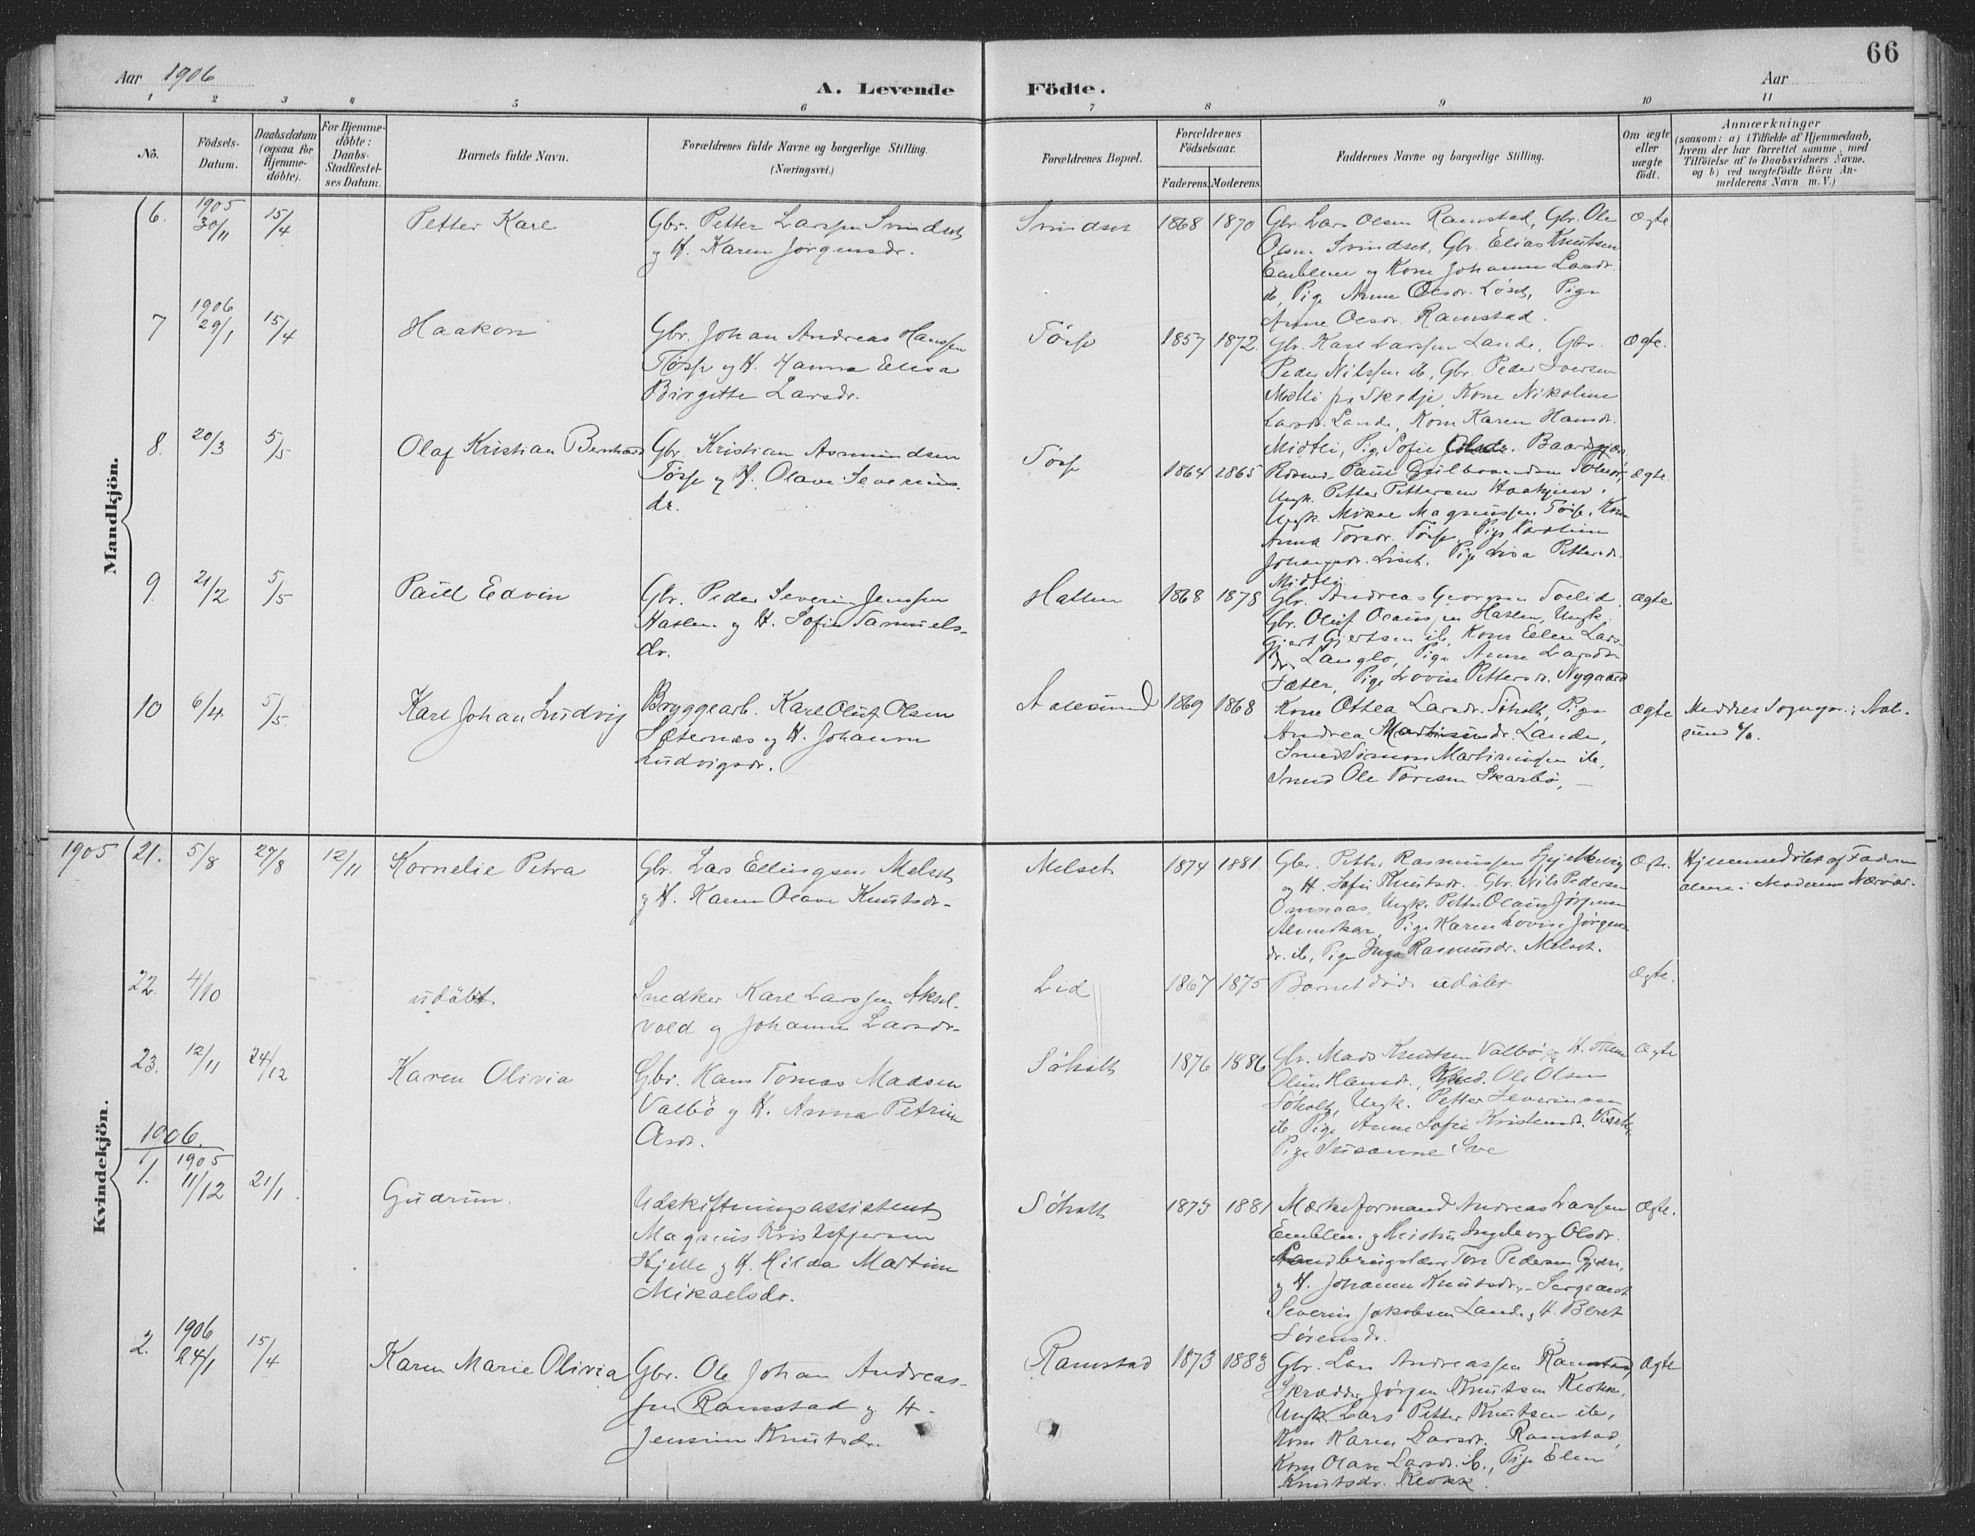 66
Aar 1906
A. Levende Födte.
Aar
1 2 3 4 5 6 7 8 9 10 11
No.
Födsels-
Datum.
Daabsdatum
(ogsaa for
Hjemme-
döbte).
For Hjemme-
döbte:
Daabs-
Stadfæstel-
ses Datum.
Barnets fulde Navn.
Forældrenes fulde Navne og borgerlige Stilling.
(Næringsvei.)
Forældrenes Bopæl.
Forældrenes
Födselsaar.
Faderens. Moderens.
Faddernes Navne og borgerlige Stilling.
Om ægte
eller
uægte
födt.
Anmærkninger
(saasom: a) i Tilfælde af Hjemmedaab,
hvem der har forrettet samme, med
Tilföielse af to Daabsvidners Navne.
og b) ved uægtefödte Börn An-
melderens Navn m. V.)
Mandkjön.
6. 1905 30/11 15/4
Petter Karl
Gbr. Petter Larssen Svindset
og H. Karen Jørgensdr.
Svindset 1868 1870
Gbr. Lars Olsen Ramstad, Gbr. Ole
Olsen Svindset, Gbr. Elias Knutsen
Emblem og Kone Johanne Larsdr.
ib, Pige Anne Olsdr. Løset, Pige
Anne Olsdr. Ramstad.
Ægte
7 1906 29/1 15/4
Haakon
Gbr. Johan Andreas Hanssen
og H. Hanna Elisa
Birgitte Larsdr.
1857 1872.
Gbr. Karl Larssen Lande, Gbr.
Peder Nilssen ib, Gbr. Peder Iversen
Kone Nikoline
Larsdr. Lande, Kone Karen Hansdr.
Midtli, Pige Sofie
Ægte.
8. 20/3 5/5
Olaf Kristian Bernhard
Gbr. Kristian Asmundsen
og H. Olave Severins-
dr.
1864 1865
Paul
Ungk. Petter Pettersen
Ungk. Mikal Magnussen
Anna
Pige Lisa Pettersdr.
Midtli
Ægte.
9. 21/2 5/5
Paul Edvin
Gbr. Peder Severin Jenssen
Hatlen og H. Sofie Samuels-
dr.
Hatlen 1868 1878
Gbr. Andreas Georgsen
Gbr. Oluf Olaussen Hatlen, Ungk.
Gjert Gjertsen ib, Kone Elen Lars-
dr. Langlo, Pige Anne Larsdr.
Sæter, Pige Lovise Pettersdr. Nygaard
Ægte
10 6/4 5/5
Karl Johan Ludvig
Bryggearb. Karl Oluf Olsen
Sæternes og H. Johanne
Ludvigsdr.
Aalesund 1869 1868
Kone Ottea Larsdr. Søholt, Pige
Andrea Martinusdr. Lande,
Smed Simon Martinussen ib,
Smed Ole Toresen Skarbø,
Ægte
Meddelt Sognepr. i Aale-
sund
Kvindekjön.
1905 21. 5/8 27/8 12/11
Kornelie Petra
Gbr. Lars Ellingsen Melset
og H. Karen Olave Knutsdr.
Melset 1874 1881.
Gbr. Petter Rasmussen
og H. Sofie Knutsdr. Gbr. Nils Pedersen
Ungk. Petter Olaus Jørgensen
Pige Karen Lovise Jørgens-
dr. ib, Pige Inga Rasmusdr. Melset.
Ægte.
Hjemmedöbt af Faderen
alene i Moderens Nærvær.
22. 4/10
udöbt.
Snedker Karl Larssen Aksel-
vold og Johanne Larsdr.
Lid 1867 1875
Barnet döde udöbt
Ægte.
23. 12/11 24/12
Karen Olivia
Gbr. Hans Tomas Madsen
Valbö og H. Anna Petrine
Olsdr.
Söholt 1876 1886
Gbr. Mads Knutsen Valbö og H.
Oline Hansdr., Ole Olsen
Söholt, Ungk. Petter Severinsen
ib, Pige Anne Sofie Kristensdr.
Pige Susanne
Ægte
1906.
1. 1905 11/12 21/1
Gudrun.
Udskiftningsassistent
Magnus Kristoffersen
Hjelle og H. Hilda Martine
Mikaelsdr.
Söholt 1873 1881
Andreas Larssen
Emblem og Hustru Ingeborg Olsdr.
Tore Pedersen
og H. Johanne Knutsdr., Sergeant
Severin Jakobsen Lande og H. Beret
Sörensdr.
Ægte.
2. 1906 24/1 15/4
Karen Marie Olivia
Gbr. Ole Johan Andreas-
sen Ramstad og H.
Jensine Knutsdr.
Ramstad 1873 1883
Gbr. Lars Andreassen Ramstad,
Skrædder Jørgen Knutsen Klokk,
Ungk. Lars Petter Knutsen ib,
Kone Karen Larsdr. Ramstad,
Kone Olave Larsdr. ib, Pige Elen
Knutsdr. Klokk.
Ægte